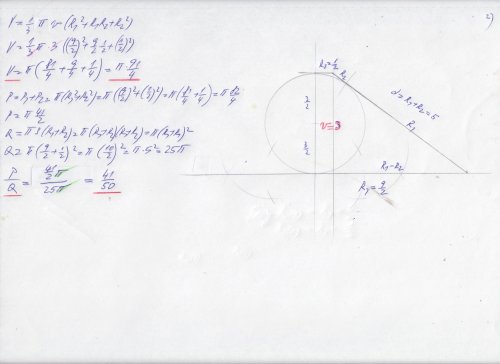 2)
V = 1/3 π v (R₁² + R₁R₂ + R₂²)
V = 1/3 π 3 ((9/2)² + 9/2 · 1/2 + (1/2)²)
V = π (81/4 + 9/4 + 1/4) = π 91/4
P = P₁ + P₂ = π(R₁² + R₂²) = π((9/2)² + (1/2)²) = π(81/4 + 1/4) = π 82/4
P = π 41/2
Q = π s(R₁ + R₂) = π(R₁ + R₂)(R₁ + R₂) = π(R₁ + R₂)²
Q = π(9/2 + 1/2)² = π(10/2)² = π · 5² = 25π
P/Q = 41/2 π / 25π = 41/50
R₂ = 1/2
R₂
d = R₁ + R₂ = 5
R₁
3/2
v = 3
3/2
R₁ - R₂
R₁ = 9/2